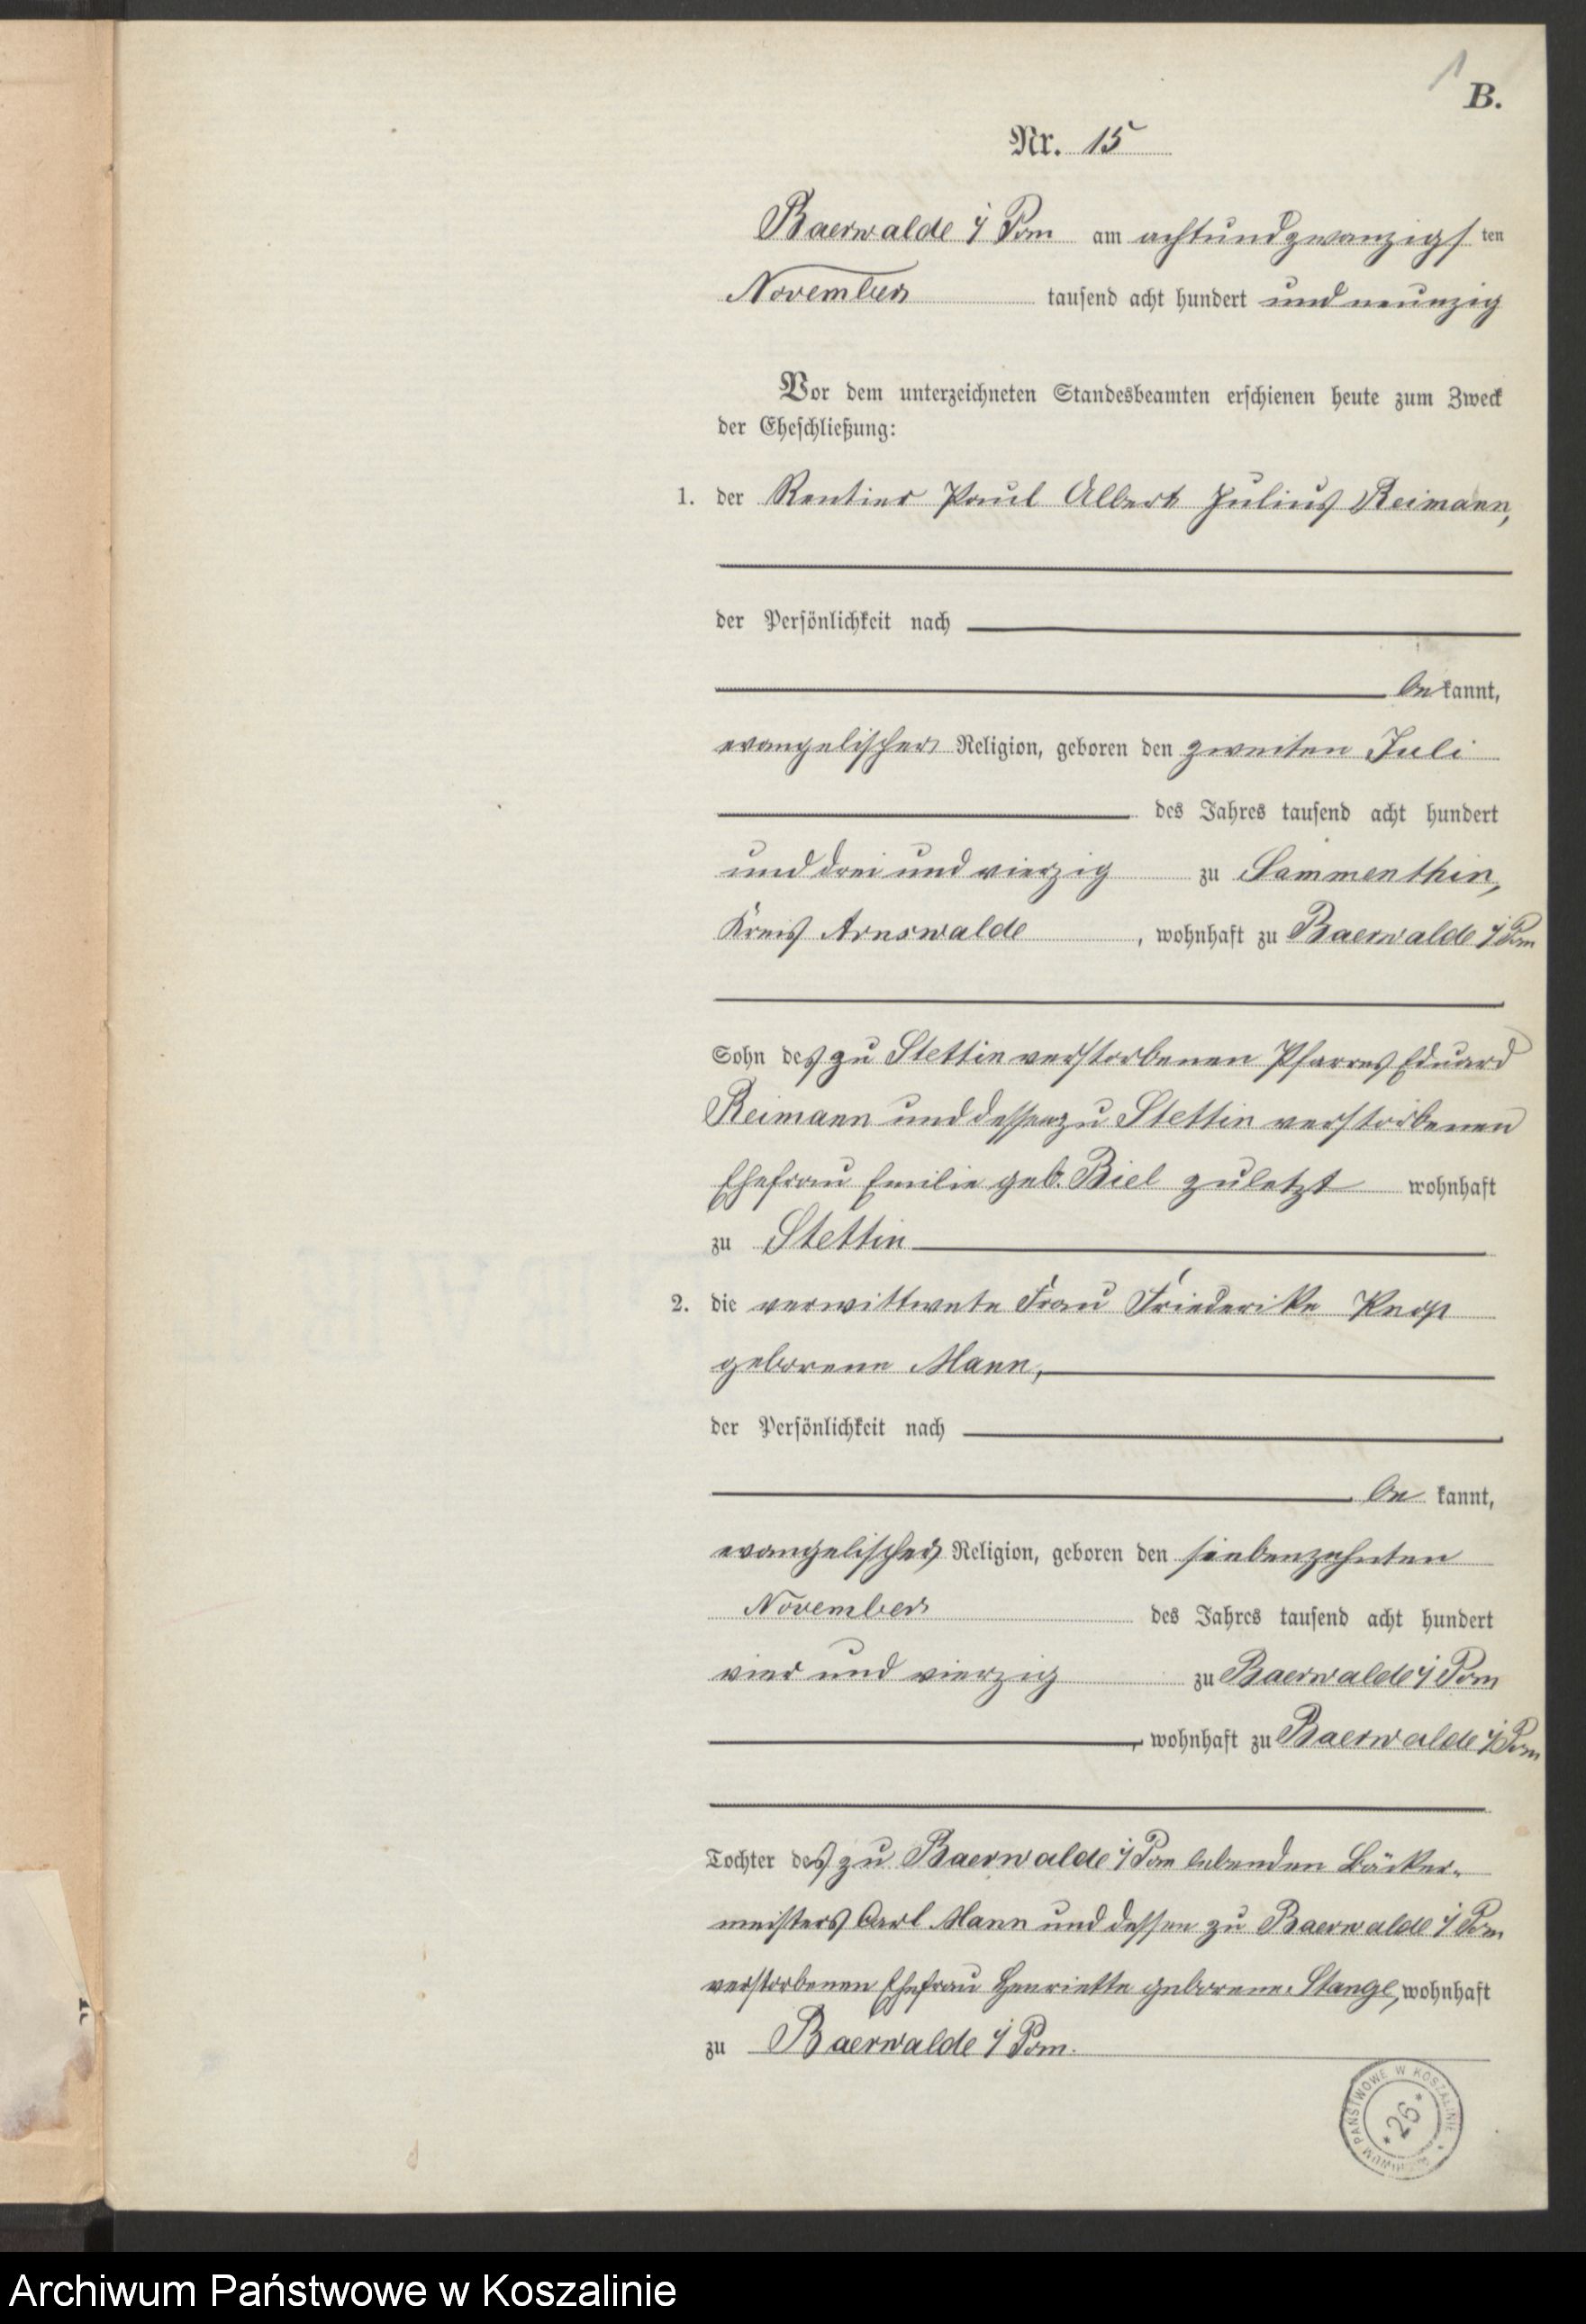 1
B.
Nr. 15
Baerwalde i/ Pom am achtundzwanzigs ten
November tausend acht hundert und neunzig
Vor dem unterzeichneten Standesbeamten erschienen heute zum Zweck
der Eheschließung:
1. der Rentier Paul Albert Julius Reimann,
der Persönlichkeit nach
be kannt,
evangelischer Religion, geboren den zweiten Juli
des Jahres tausend acht hundert
und drei und vierzig zu Sammenthin,
Kreis Arnswalde, wohnhaft zu Baerwalde i/ Pom
Sohn des zu Stettin verstorbenen Pfarrers Eduard
Reimann und dessen zu Stettin verstorbenen
Ehefrau Emilie geb. Biel zuletzt wohnhaft
zu Stettin
2. die verwittwete Frau Friederike
geborene Mann,
der Persönlichkeit nach
be kannt,
evangelischer Religion, geboren den siebenzehnten
November des Jahres tausend acht hundert
vier und vierzig zu Baerwalde i/ Pom
, wohnhaft zu Baerwalde i/ Pom
Tochter des zu Baerwalde i/ Pom lebenden Bäcker-
meisters Carl Mann und dessen zu Baerwalde i/ Pom
verstorbenen Ehefrau Henriette geborene Stange, wohnhaft
zu Baerwalde i/ Pom.
ARCHIWUM PAŃSTWOWE W KOSZALINIE
* 26 *
Archiwum Państwowe w Koszalinie